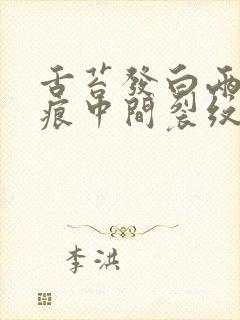 舌苔發白兩
痕中間裂紋
李洪